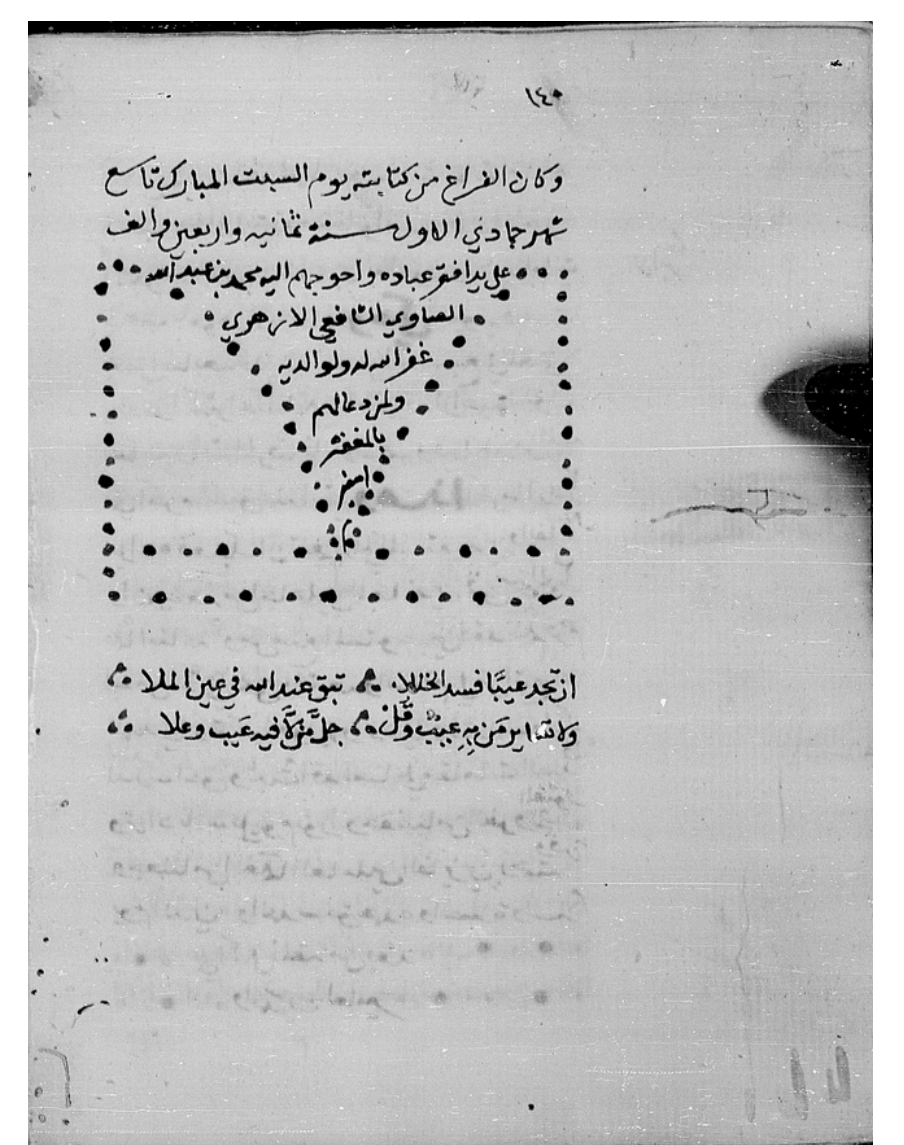 ١٤٠
وكان الفراغ من كتابته يوم السبت المبارك تاسع
شهر جمادي الاول سنة ثمانيه واربعين والف
علي يد افقر عباده واحوجهم اليه محمد بن عبد الله
الصاوي الشافعي الازهري
غفر الله له ولوالديه
ولمن دعا لهم
بالمغفرة
امين
م
ان تجد عيبًا فسد الخللا تبق عند الله في عين الملا
ولا تداير من به عيب وقل جل من لا فيه عيب وعلا